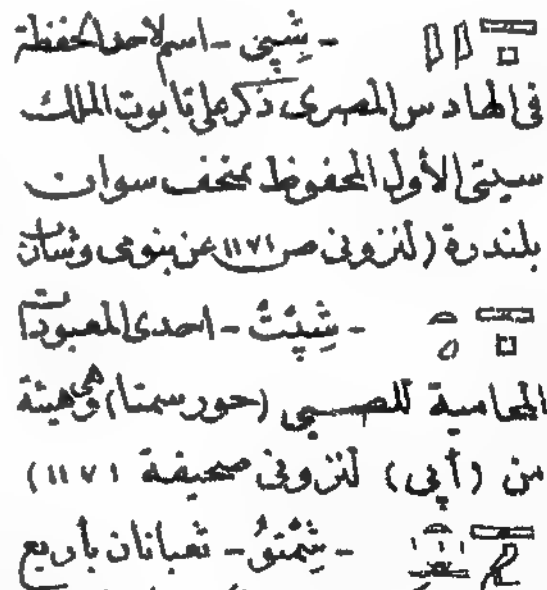 - شِپى - اسم لأحد الحفظة
فى الهادس المصرى ذكر على تابوت الملك
سيتى الأول المحفوظ بمتحف سوان
بلندرة (لنزونى ص ١١٧١ عن بنومى وشاب
- شِپِتُ - احدى المعبودات
الحامية للصبى (حورسمتا) وهى هيئة
من (أپى) لنزونى صحيفة ١١٧١)
- شِمْتَوُ - ثعبانان بأربع